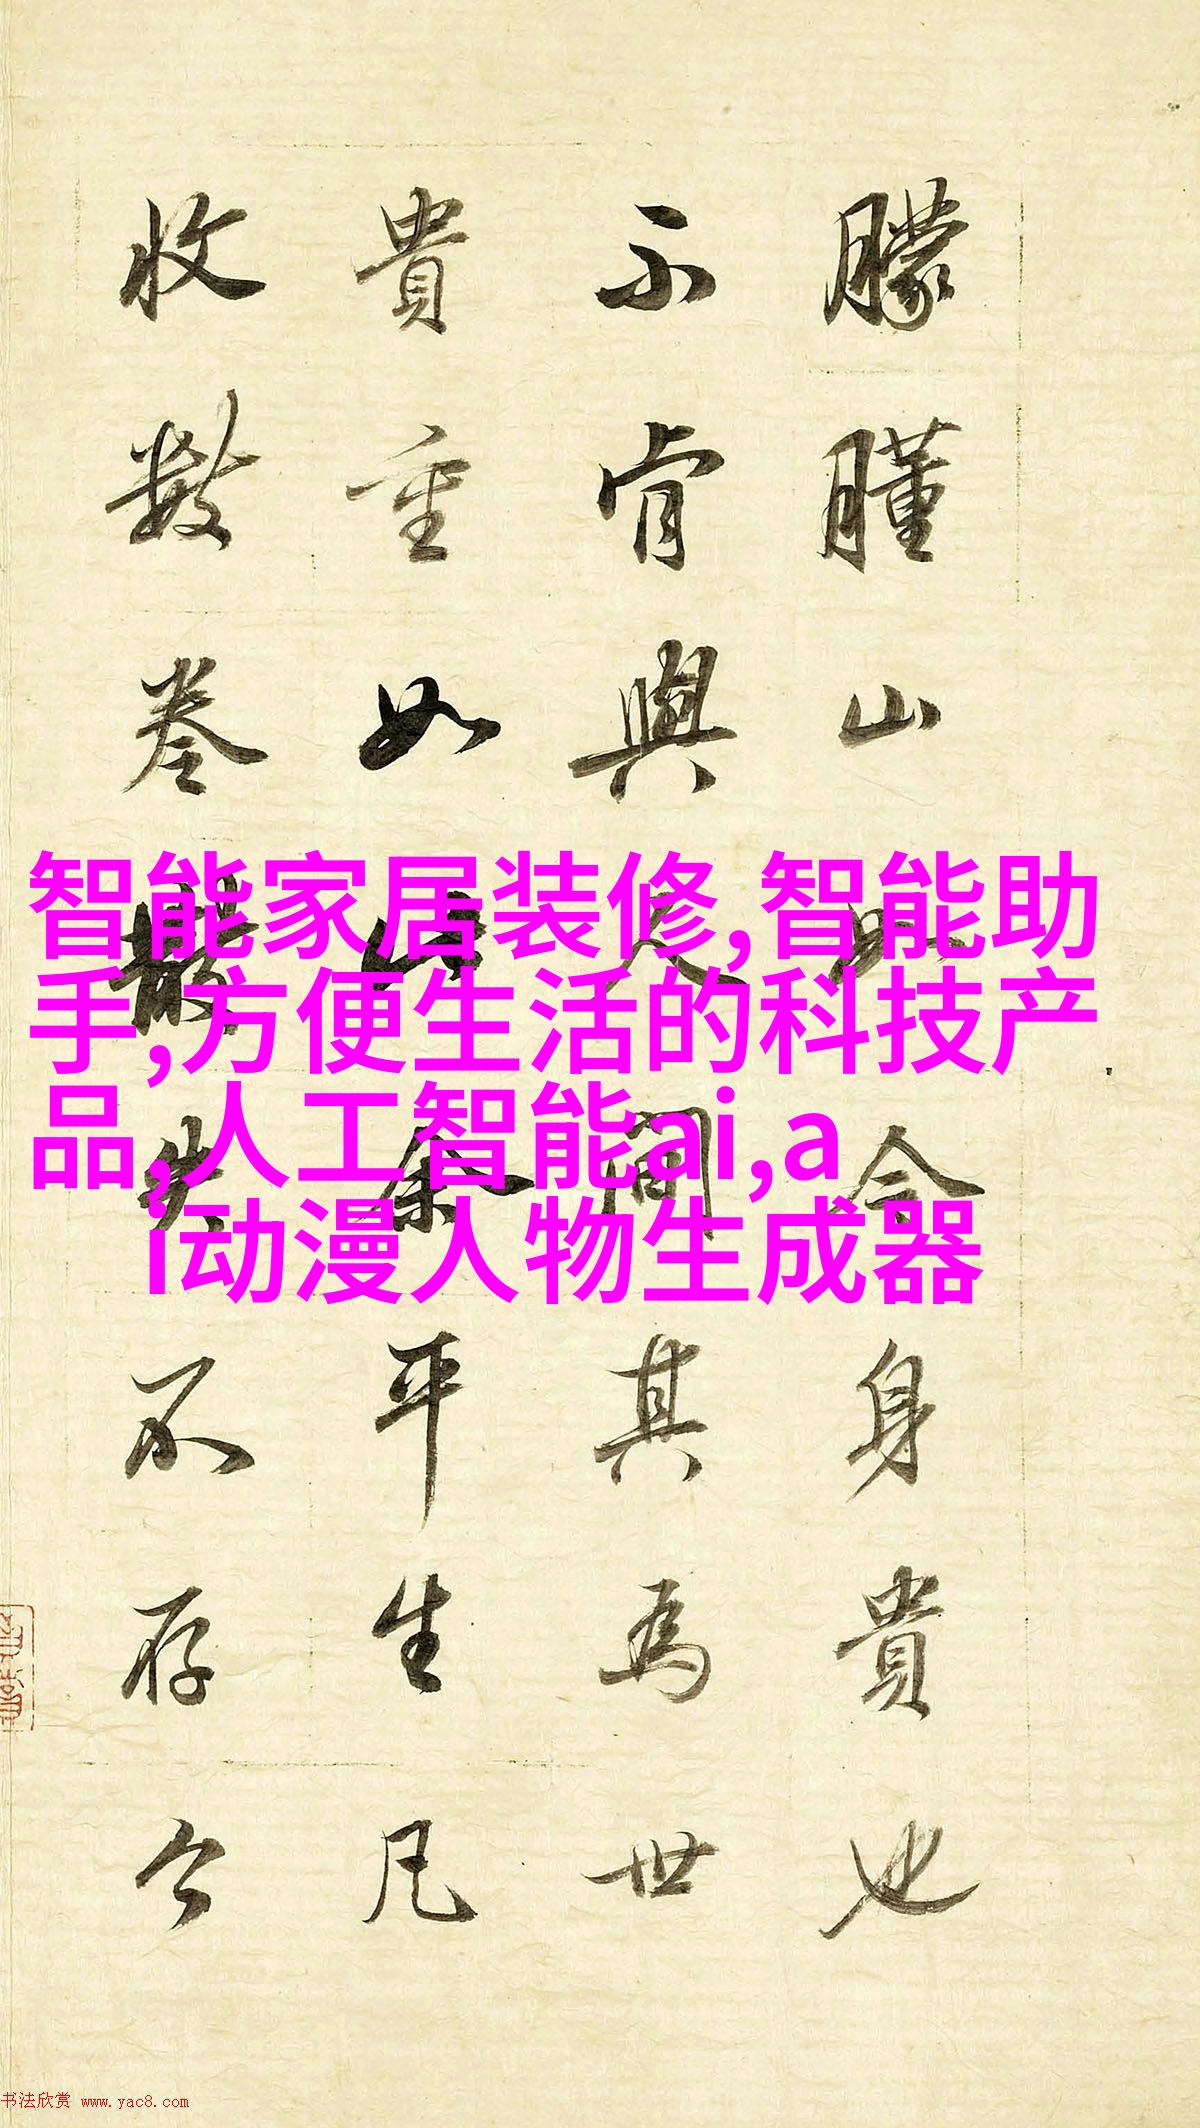 智能家居装修,智能助
手,方便生活的科技产
品,人工智能ai,a
i动漫人物生成器
朦山今身貴也
不肯與間其為世
貴重如此余平生凡
收數卷散失不存今
书法欣赏 www.yac8.com